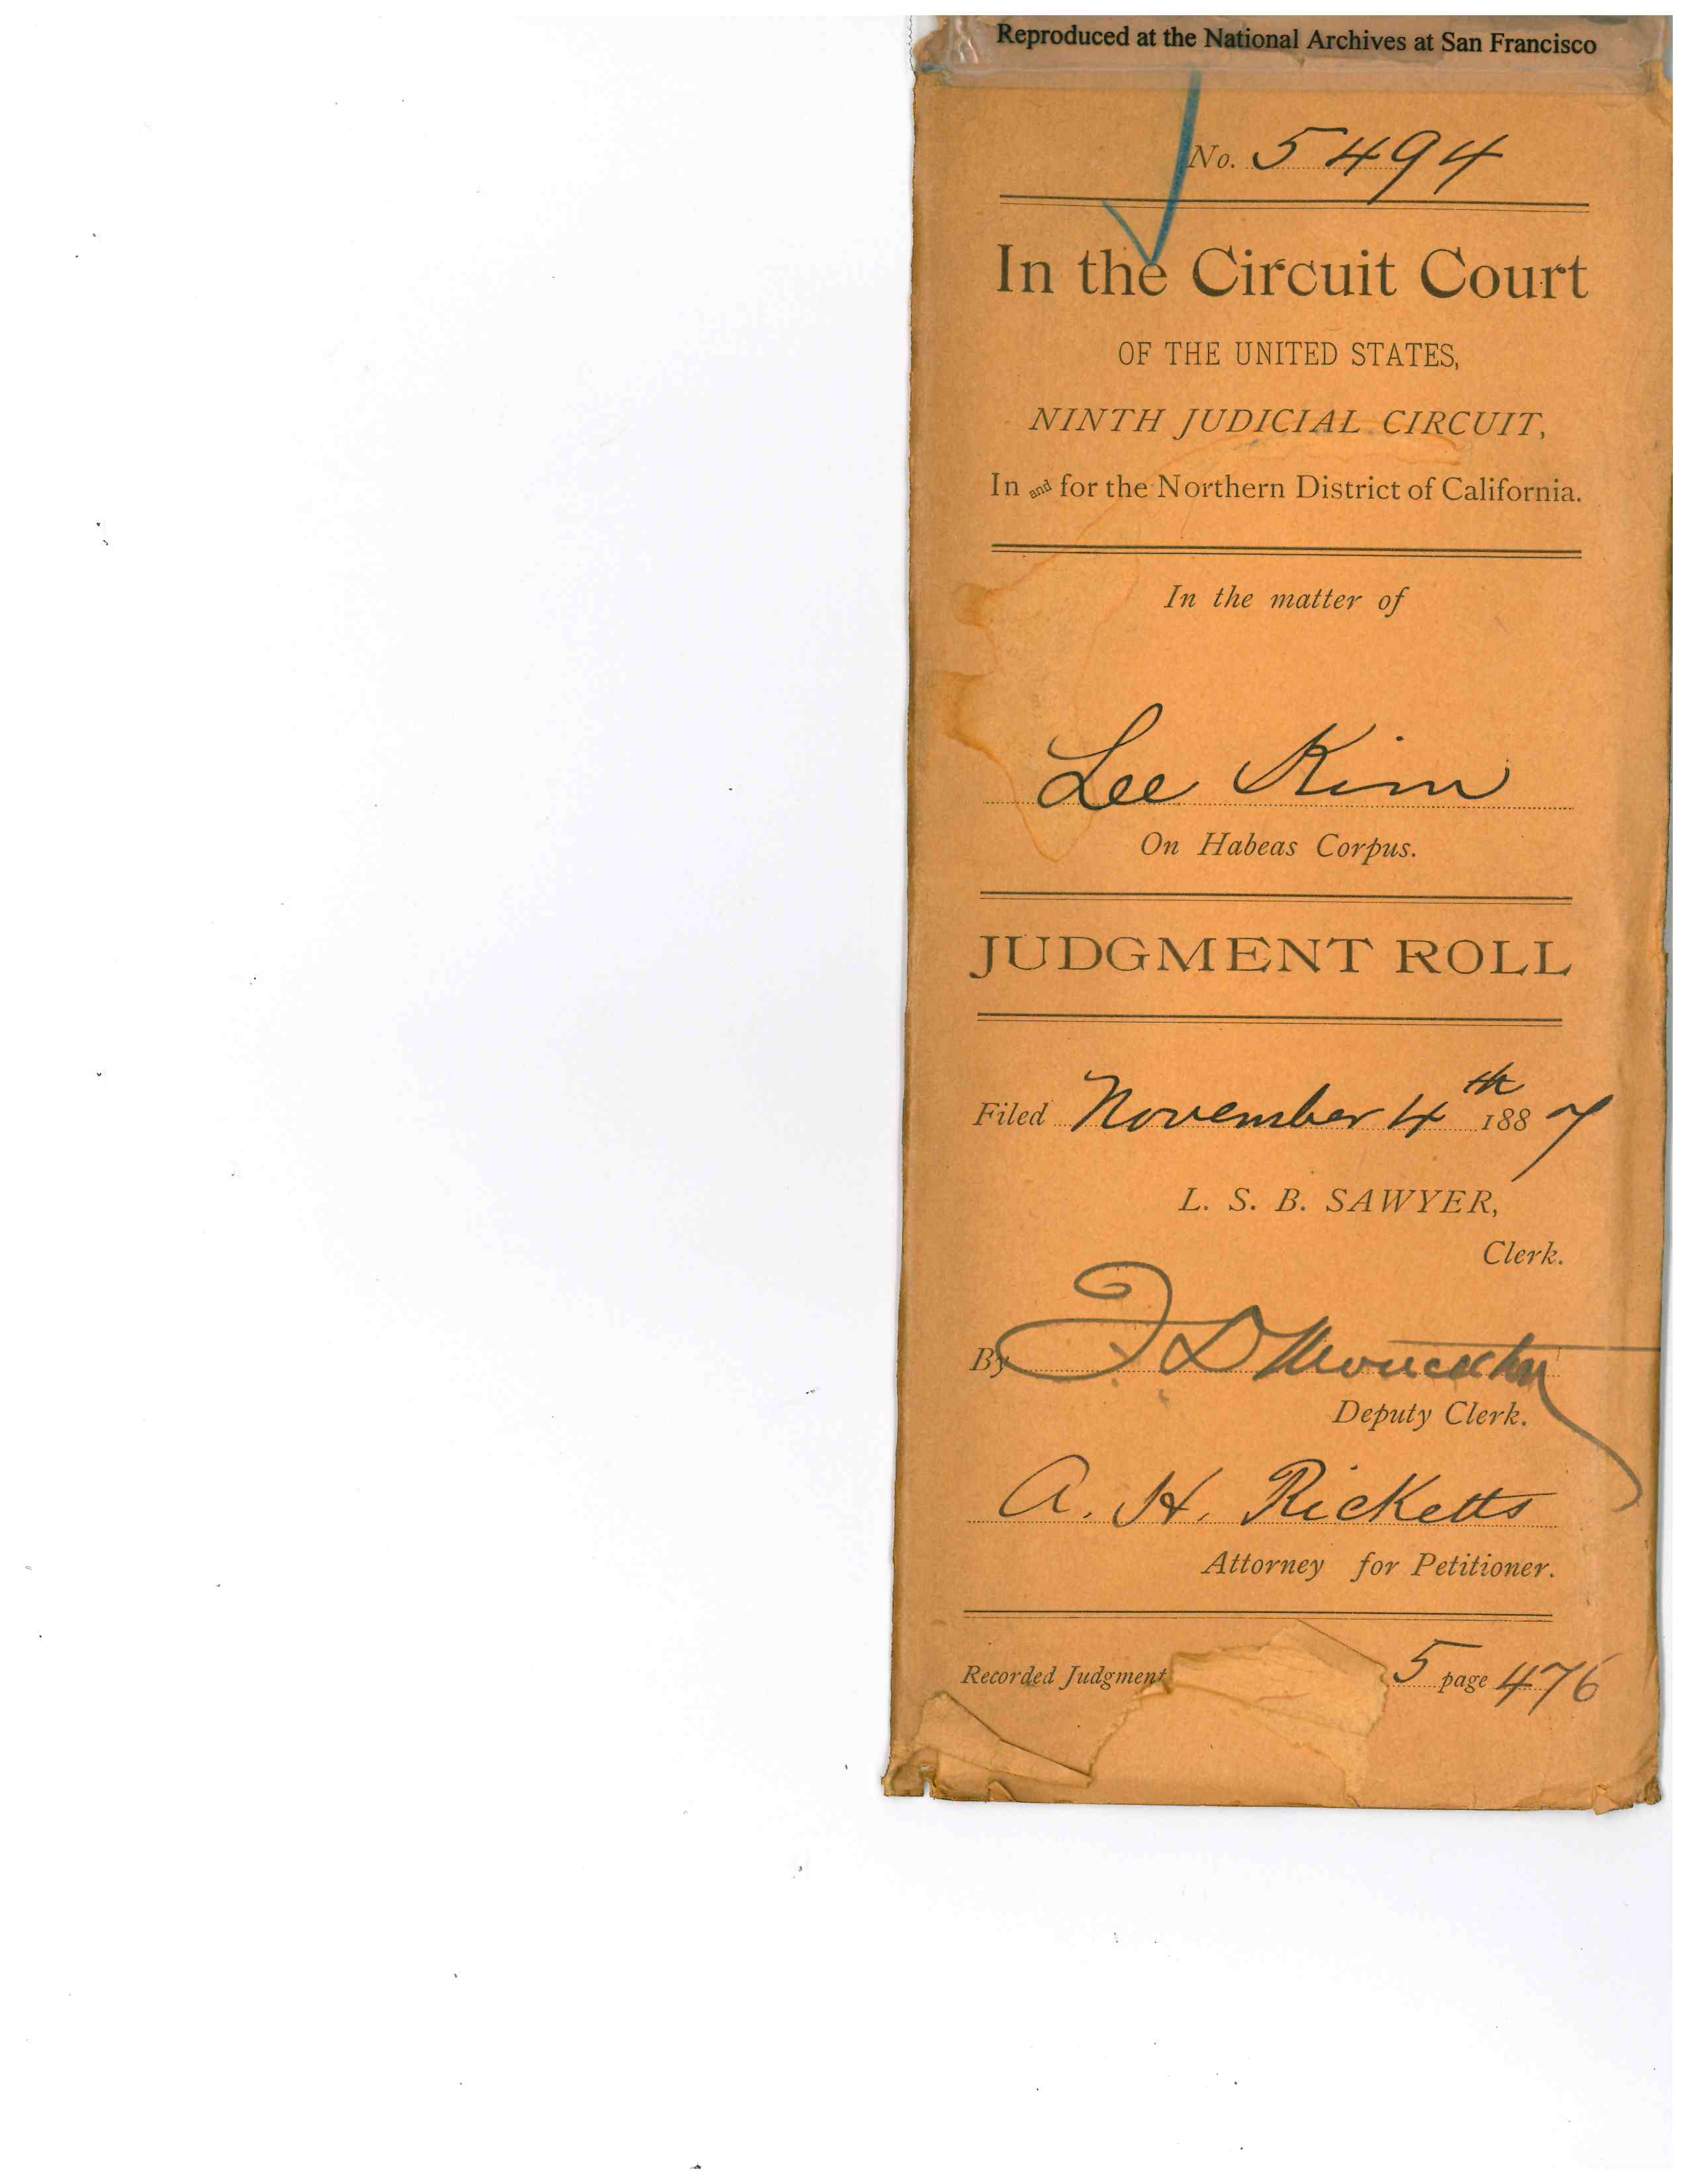 Reproduced at the National Archives at San Francisco
No. 5494
In the Circuit Court
OF THE UNITED STATES,
NINTH JUDICIAL CIRCUIT,
In and for the Northern District of California.
In the matter of
Lee Kim
On Habeas Corpus.
JUDGMENT ROLL
Filed November 4th 1887
L. S. B. SAWYER,
Clerk.
By
Deputy Clerk.
A. H. Ricketts
Attorney for Petitioner.
Recorded Judgment 5 page 476